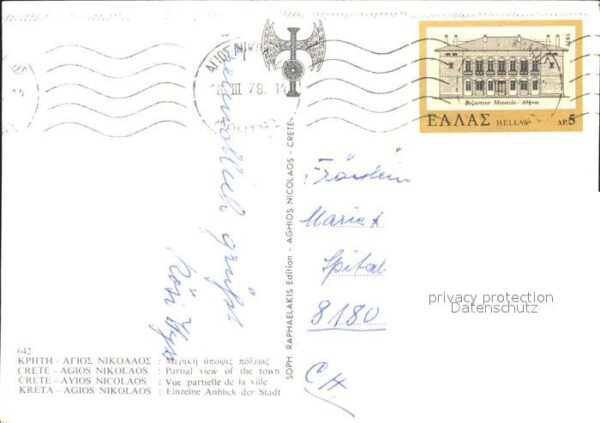 ΑΓΙΟΣ ΝΙΚ
III 78. 14
1977
Βυζαντινό Μουσείο - Αθήναι
ΕΛΛΑΣ HELLAS ΔΡ. 5
Freundlich grüsst
Rösi
SOPH. RAPHAELAKIS Edition - AGHIOS NICOLAOS - CRETE
Fräulein
Marie
Spital
8180
CH.
privacy protection
Datenschutz
642
ΚΡΗΤΗ – ΑΓΙΟΣ ΝΙΚΟΛΑΟΣ : Μερική άποψις πόλεως
CRETE – AGIOS NIKOLAOS : Partial view of the town
CRETE – AYIOS NICOLAOS : Vue partielle de la ville
KRETA – AGIOS NIKOLAOS : Einzelne Anblick der Stadt